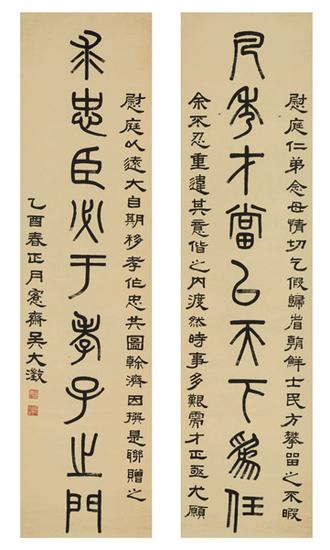 慰庭仁弟念母情切乞假歸省朝鮮士民方攀留之不暇
凡秀才當㠯天下爲任
余不忍重違其意偕之内渡然時事多艱需才正亟尤願
慰庭以遠大自期移孝作忠共圖榦濟因撰是聯贈之
求忠臣必于孝子之門
乙酉春正月愙齋吳大澂